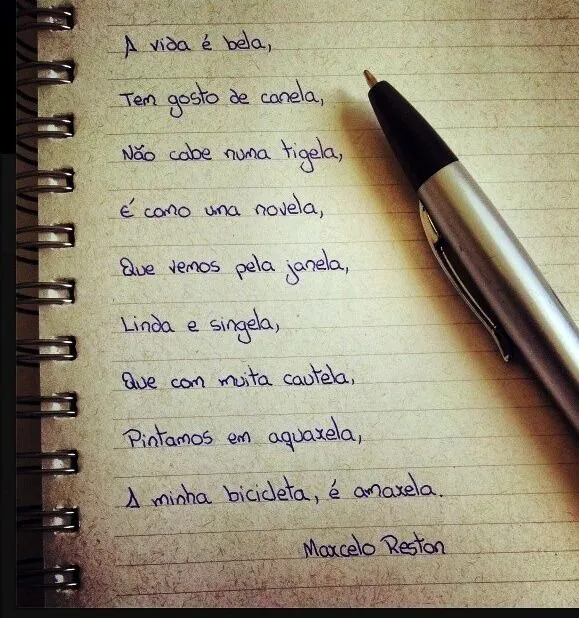 A vida é bela,
Tem gosto de canela,
Não cabe numa tigela,
é como una novela,
Que vemos pela janela,
Linda e singela,
Que com muita cautela,
Pintamos em aquarela,
A minha bicicleta, é amarela.
Marcelo Reston